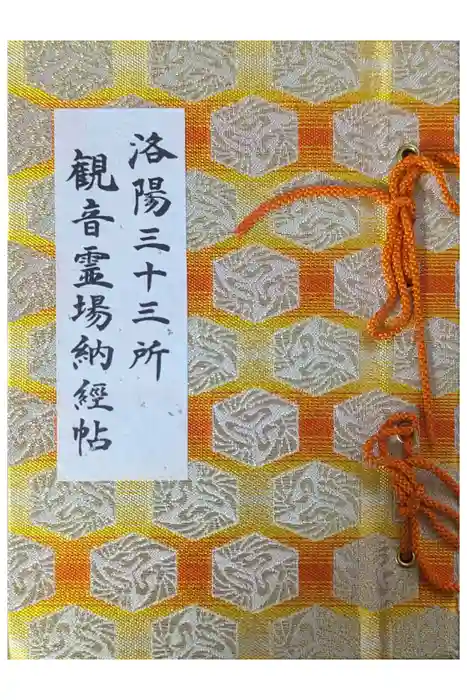 洛陽三十三所
観音霊場納經帖